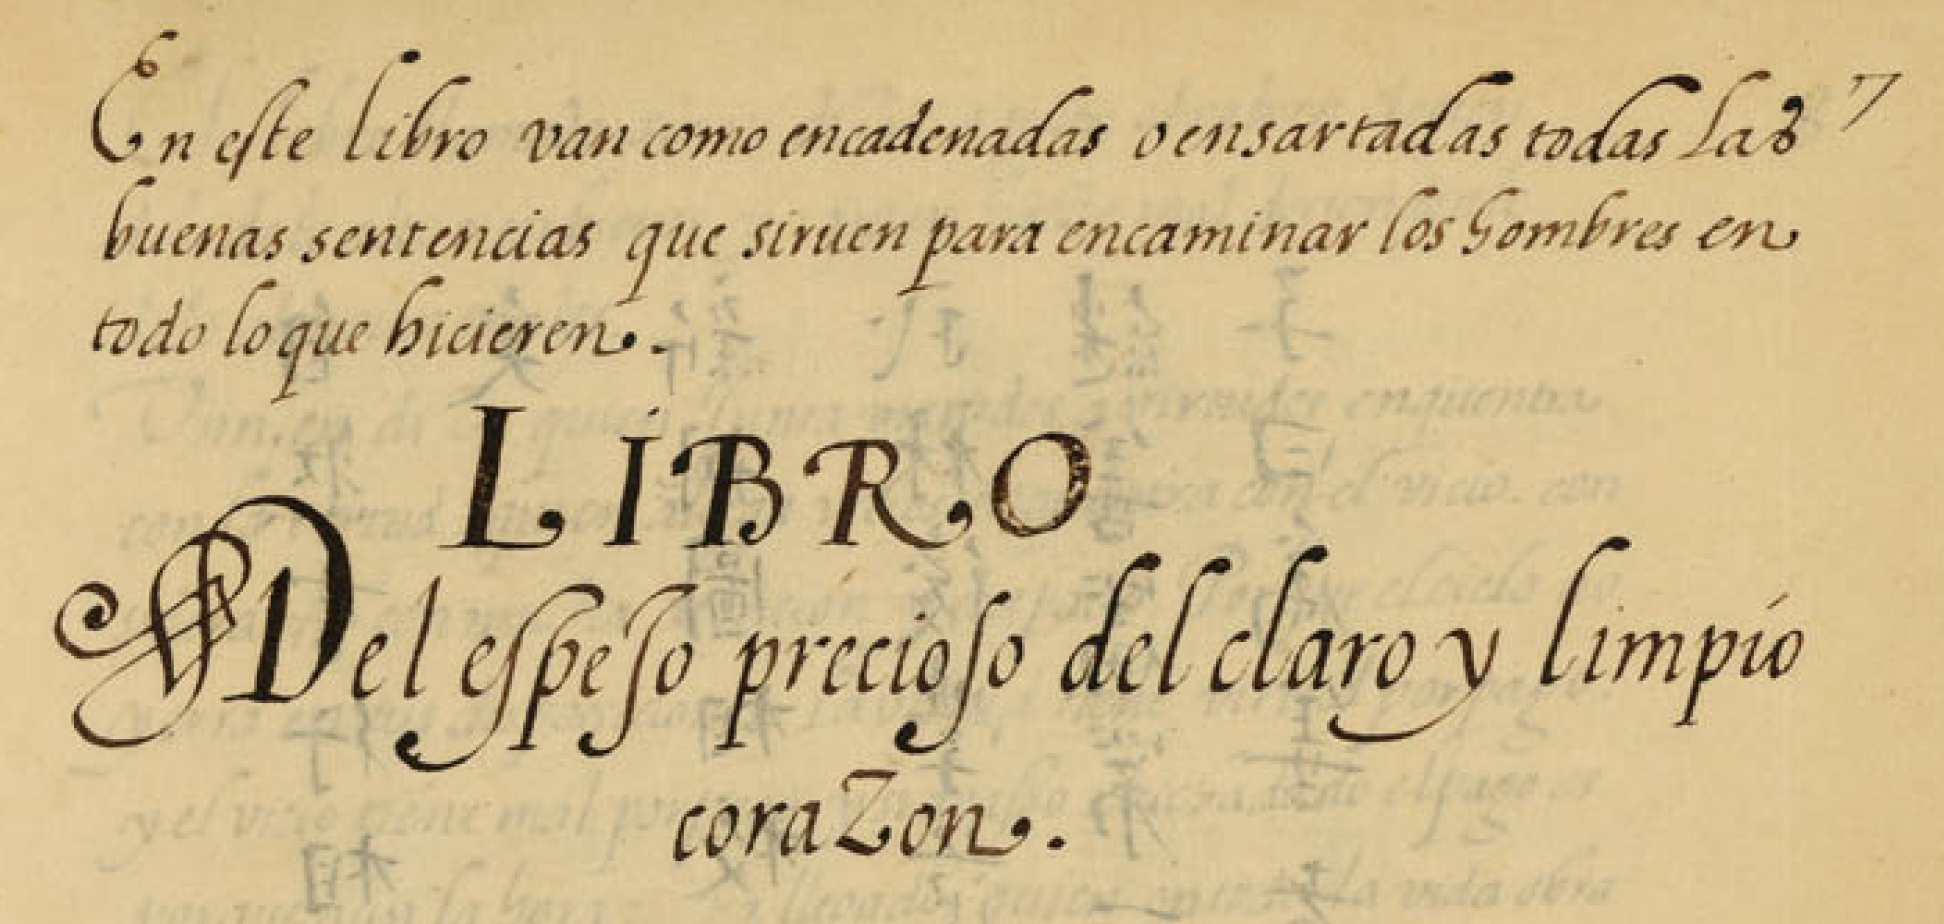 En este libro van como encadenadas o ensartadas todas las 7
buenas sentencias que siruen para encaminar los hombres en
todo lo que hicieren.
LIBRO
Del espeſo precioſo del claro y limpio
coraZon.